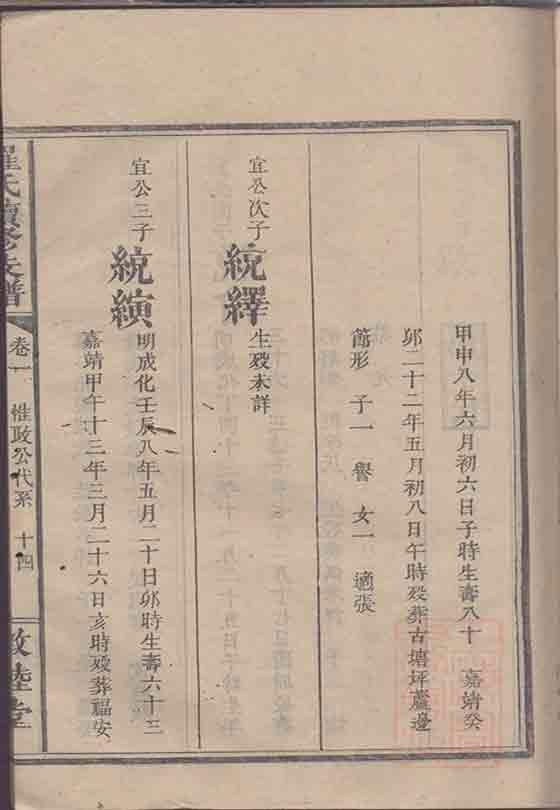 甲申八年六月初六日子時生壽八十　嘉靖癸
卯二十二年五月初八日午時殁葬古塘坪蘆邊
節形　子一　譽　女一　適張
宜公次子　統繹　生殁未詳
宜公三子　統演　明成化壬辰八年五月二十日卯時生壽六十三
嘉靖甲午十三年三月二十六日亥時殁葬福安
羅氏續修族譜　卷一　惟政公代系　十四　敦睦堂